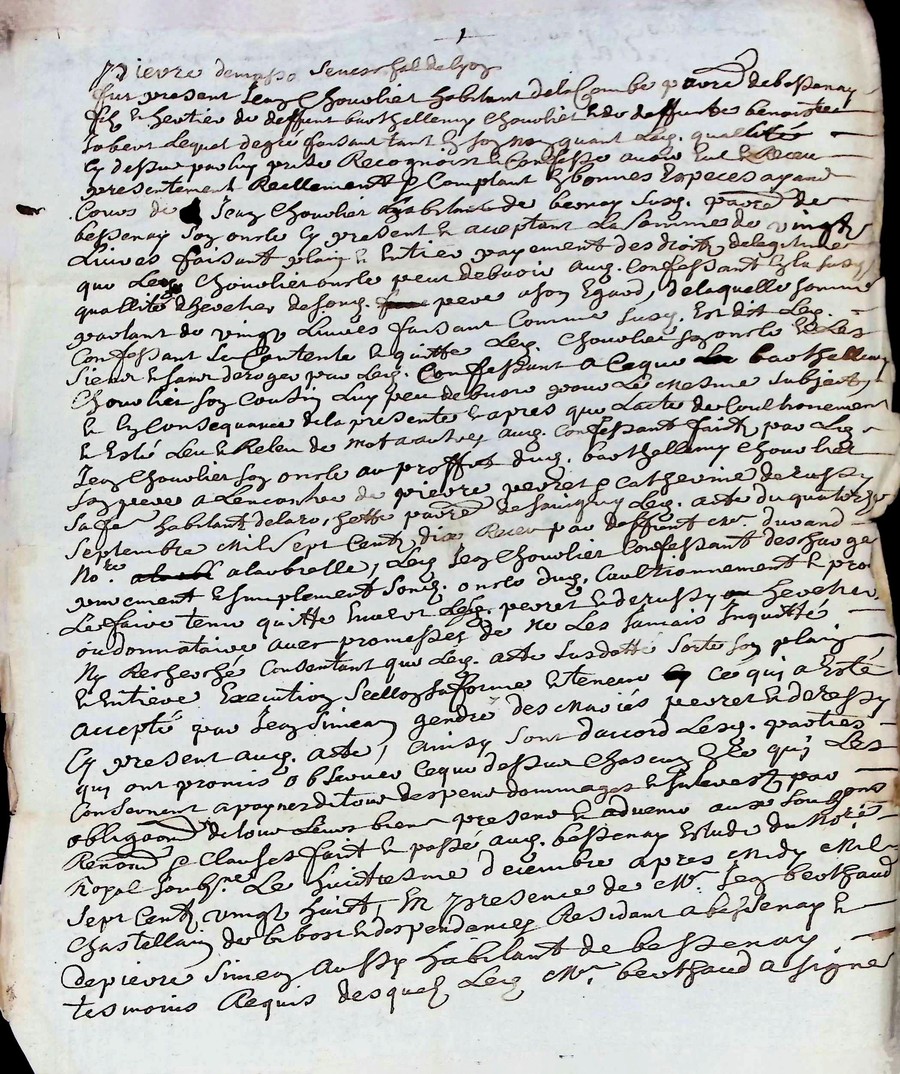 1
Pierre demasso seneschal de lyon
fut present Jean Chouvliet habitant de la Combe parr de bessenay
fils & hertier de deffunt barthellemy Chouvliet & de deffunte benoiste
Jobert Lequel degré faisant tant en son nom quant Lesq. quallités
Cy dessus par luy prise Recognoist & Confesse avoir Eut & Receu
presentement Reellement & Comptant En bonnes Especes ayant
Cours de Jean Chouvliet habitant de bernay susq. parr de
bessenay son oncle Cy present & aceptant La somme de vingt
Livres faisant plain & Entier payement des droits de legitime
que Lesq. Chouvliet oncle peut debvoir auq. Confessant En la susq.
quallité d'heretier de son q. pere a son Egard, de laquelle somme
partant de vingt Livres faisant Comme susq. Est dit Leq.
Confessant Se Contente & quitte Leq. Chouvliet son oncle & Les
siens & sans deroger par Leq. Confessant a Ceque barthellemy
Chouvliet son Cousin Luy peu debvoir pour Le mesme subject
& En Consequance de la presente & apres que Lacte de Cautionnement
& Esté Leu & Releu de mot a autres auq. Confessant fait par Leq.
Jean Chouvliet son oncle au proffit duq. barthellemy Chouvliet
son pere a Lencontre de pierre perret & Catherine derussy
sa fe. habitant de la rochette parr de Leq. acte du quatorze
septembre mil sept Cents dix Receu par deffunt Mr. durand
No.re a laubrelle, Leq. Jean Chouvliet Confessant descharge
purement & simplement son q. oncle duq. Cautionnement & promet
Le faire tenir quitte Envers Lesq. perret & derussy heretier
ou donnataire avec promesses de ne Les Jamais Inquitté
Ny Recherché Consentant que Leq. acte susdatté sorte son plain
& Entiere Execution sellon sa forme & teneur ce qui a Esté
accepté par Jean Simean gendre des mariés perret & deressy
Cy present auq. acte, Ainsy sont d'accord Lesq. parties
qui ont promis observer Ceque dessus Chascun En Ce qui Les
Concernent a payne de tous despens dommages & Interests par
obligaon de tous Leurs biens present & advenir aux soubmons
Renons & Clauses fait & passé auq. bessenay Estude du No.re
Royal soubs.né Le huitiesme decembre apres midy Mil
sept Cents vingt huit En presence de Mr. Jean berthaud
Chastellain de & despendences Resident a bessenay &
de pierre Simean aussy habitant de bessenay.
tesmoins Requis desquels Leq. Mr. berthaud a signé